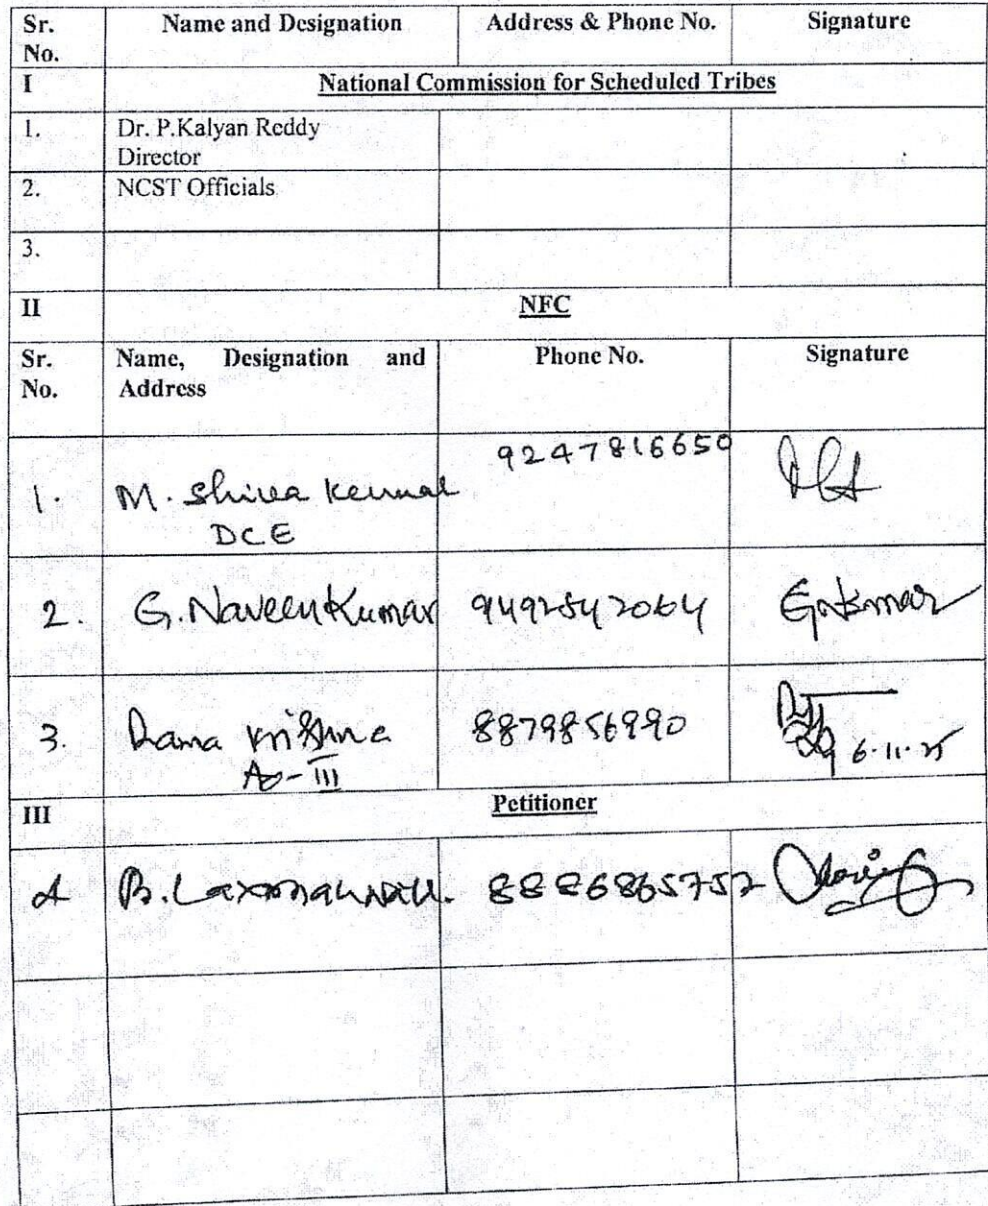 Sr. No. Name and Designation Address & Phone No. Signature
I National Commission for Scheduled Tribes
1. Dr. P.Kalyan Reddy
Director
2. NCST Officials
3.
II NFC
Sr. No. Name, Designation and Address Phone No. Signature
1. M. Shiva Kumar 9247816650
DCE
2. G. Naveen Kumar 9492542064 GNKumar
3. Rama Krishna 8879856990
AO-III 6.11.25
III Petitioner
B. Laxman 8886865752